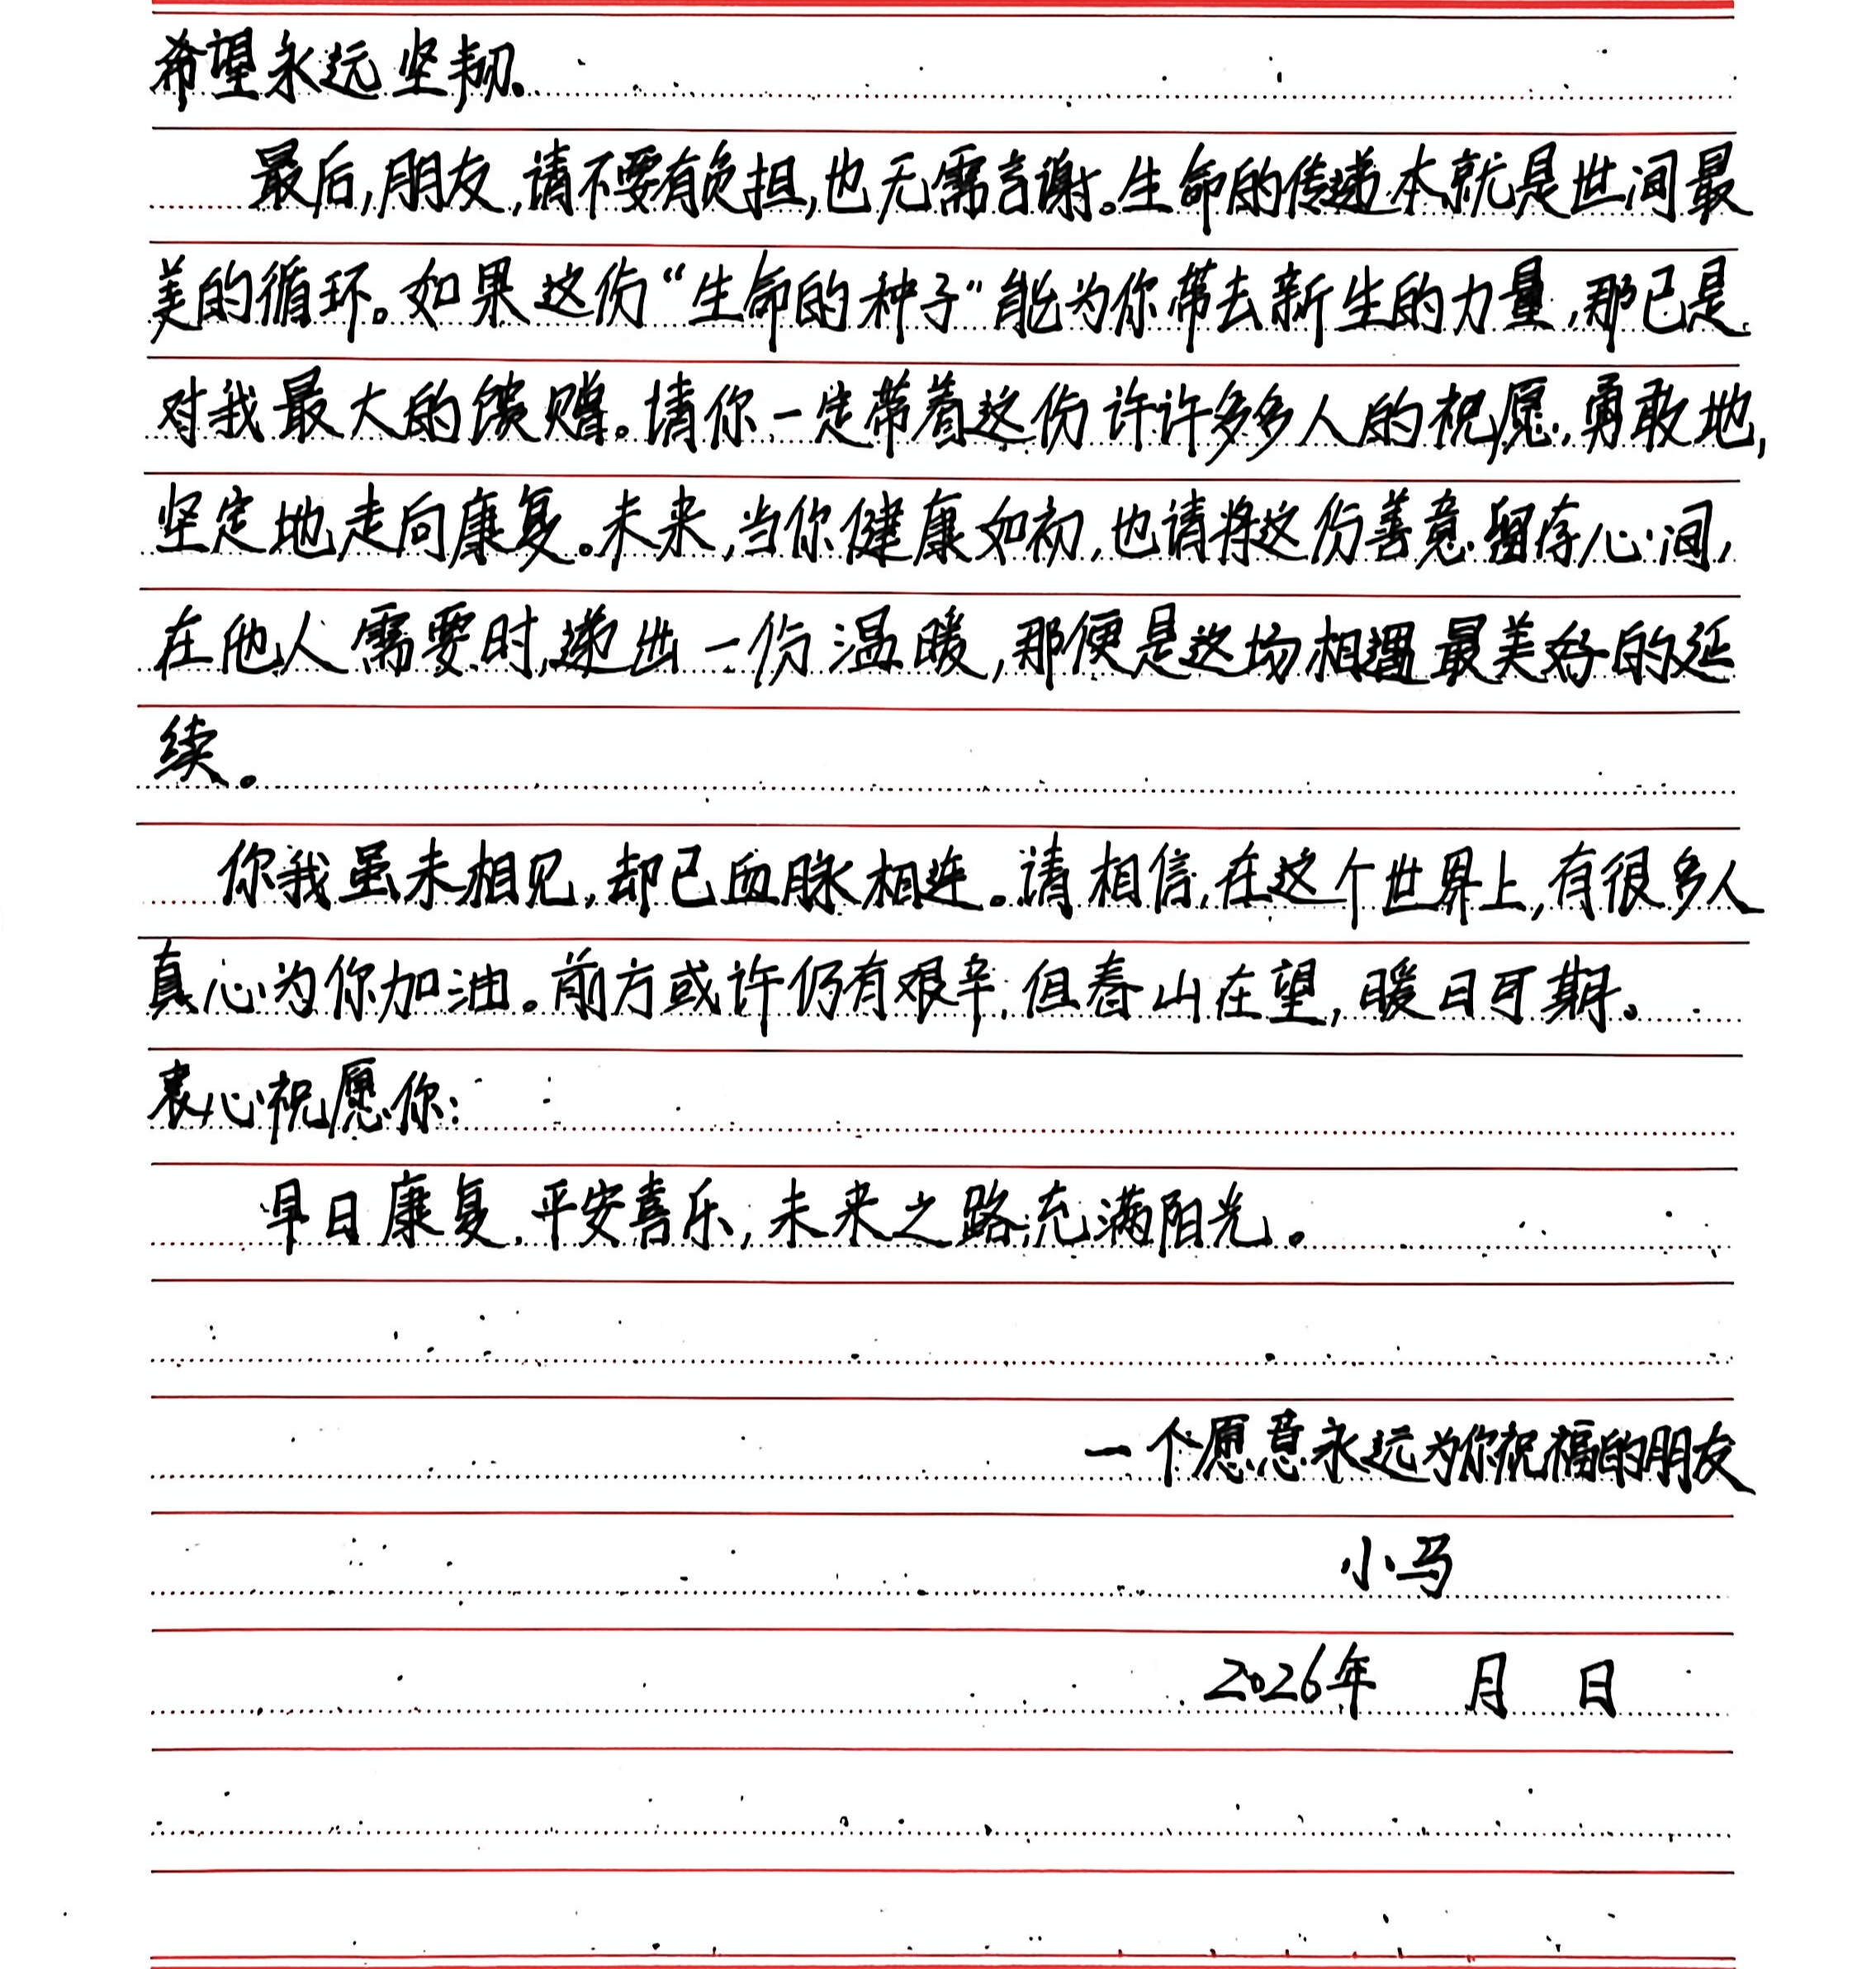 希望永远坚韧。
最后,朋友,请不要有负担,也无需言谢。生命的传递本就是世间最
美的循环。如果这份“生命的种子”能为你带去新生的力量,那已是
对我最大的馈赠。请你一定带着这份许许多多人的祝愿,勇敢地,
坚定地走向康复。未来,当你健康如初,也请将这份善意留存心间,
在他人需要时,递出一份温暖,那便是这场相遇最美好的延
续。
你我虽未相见,却已血脉相连。请相信,在这个世界上,有很多人
真心为你加油。前方或许仍有艰辛,但春山在望,暖日可期。
衷心祝愿你:
早日康复,平安喜乐,未来之路,充满阳光。
一个愿意永远为你祝福的朋友
小马
2026年 月 日